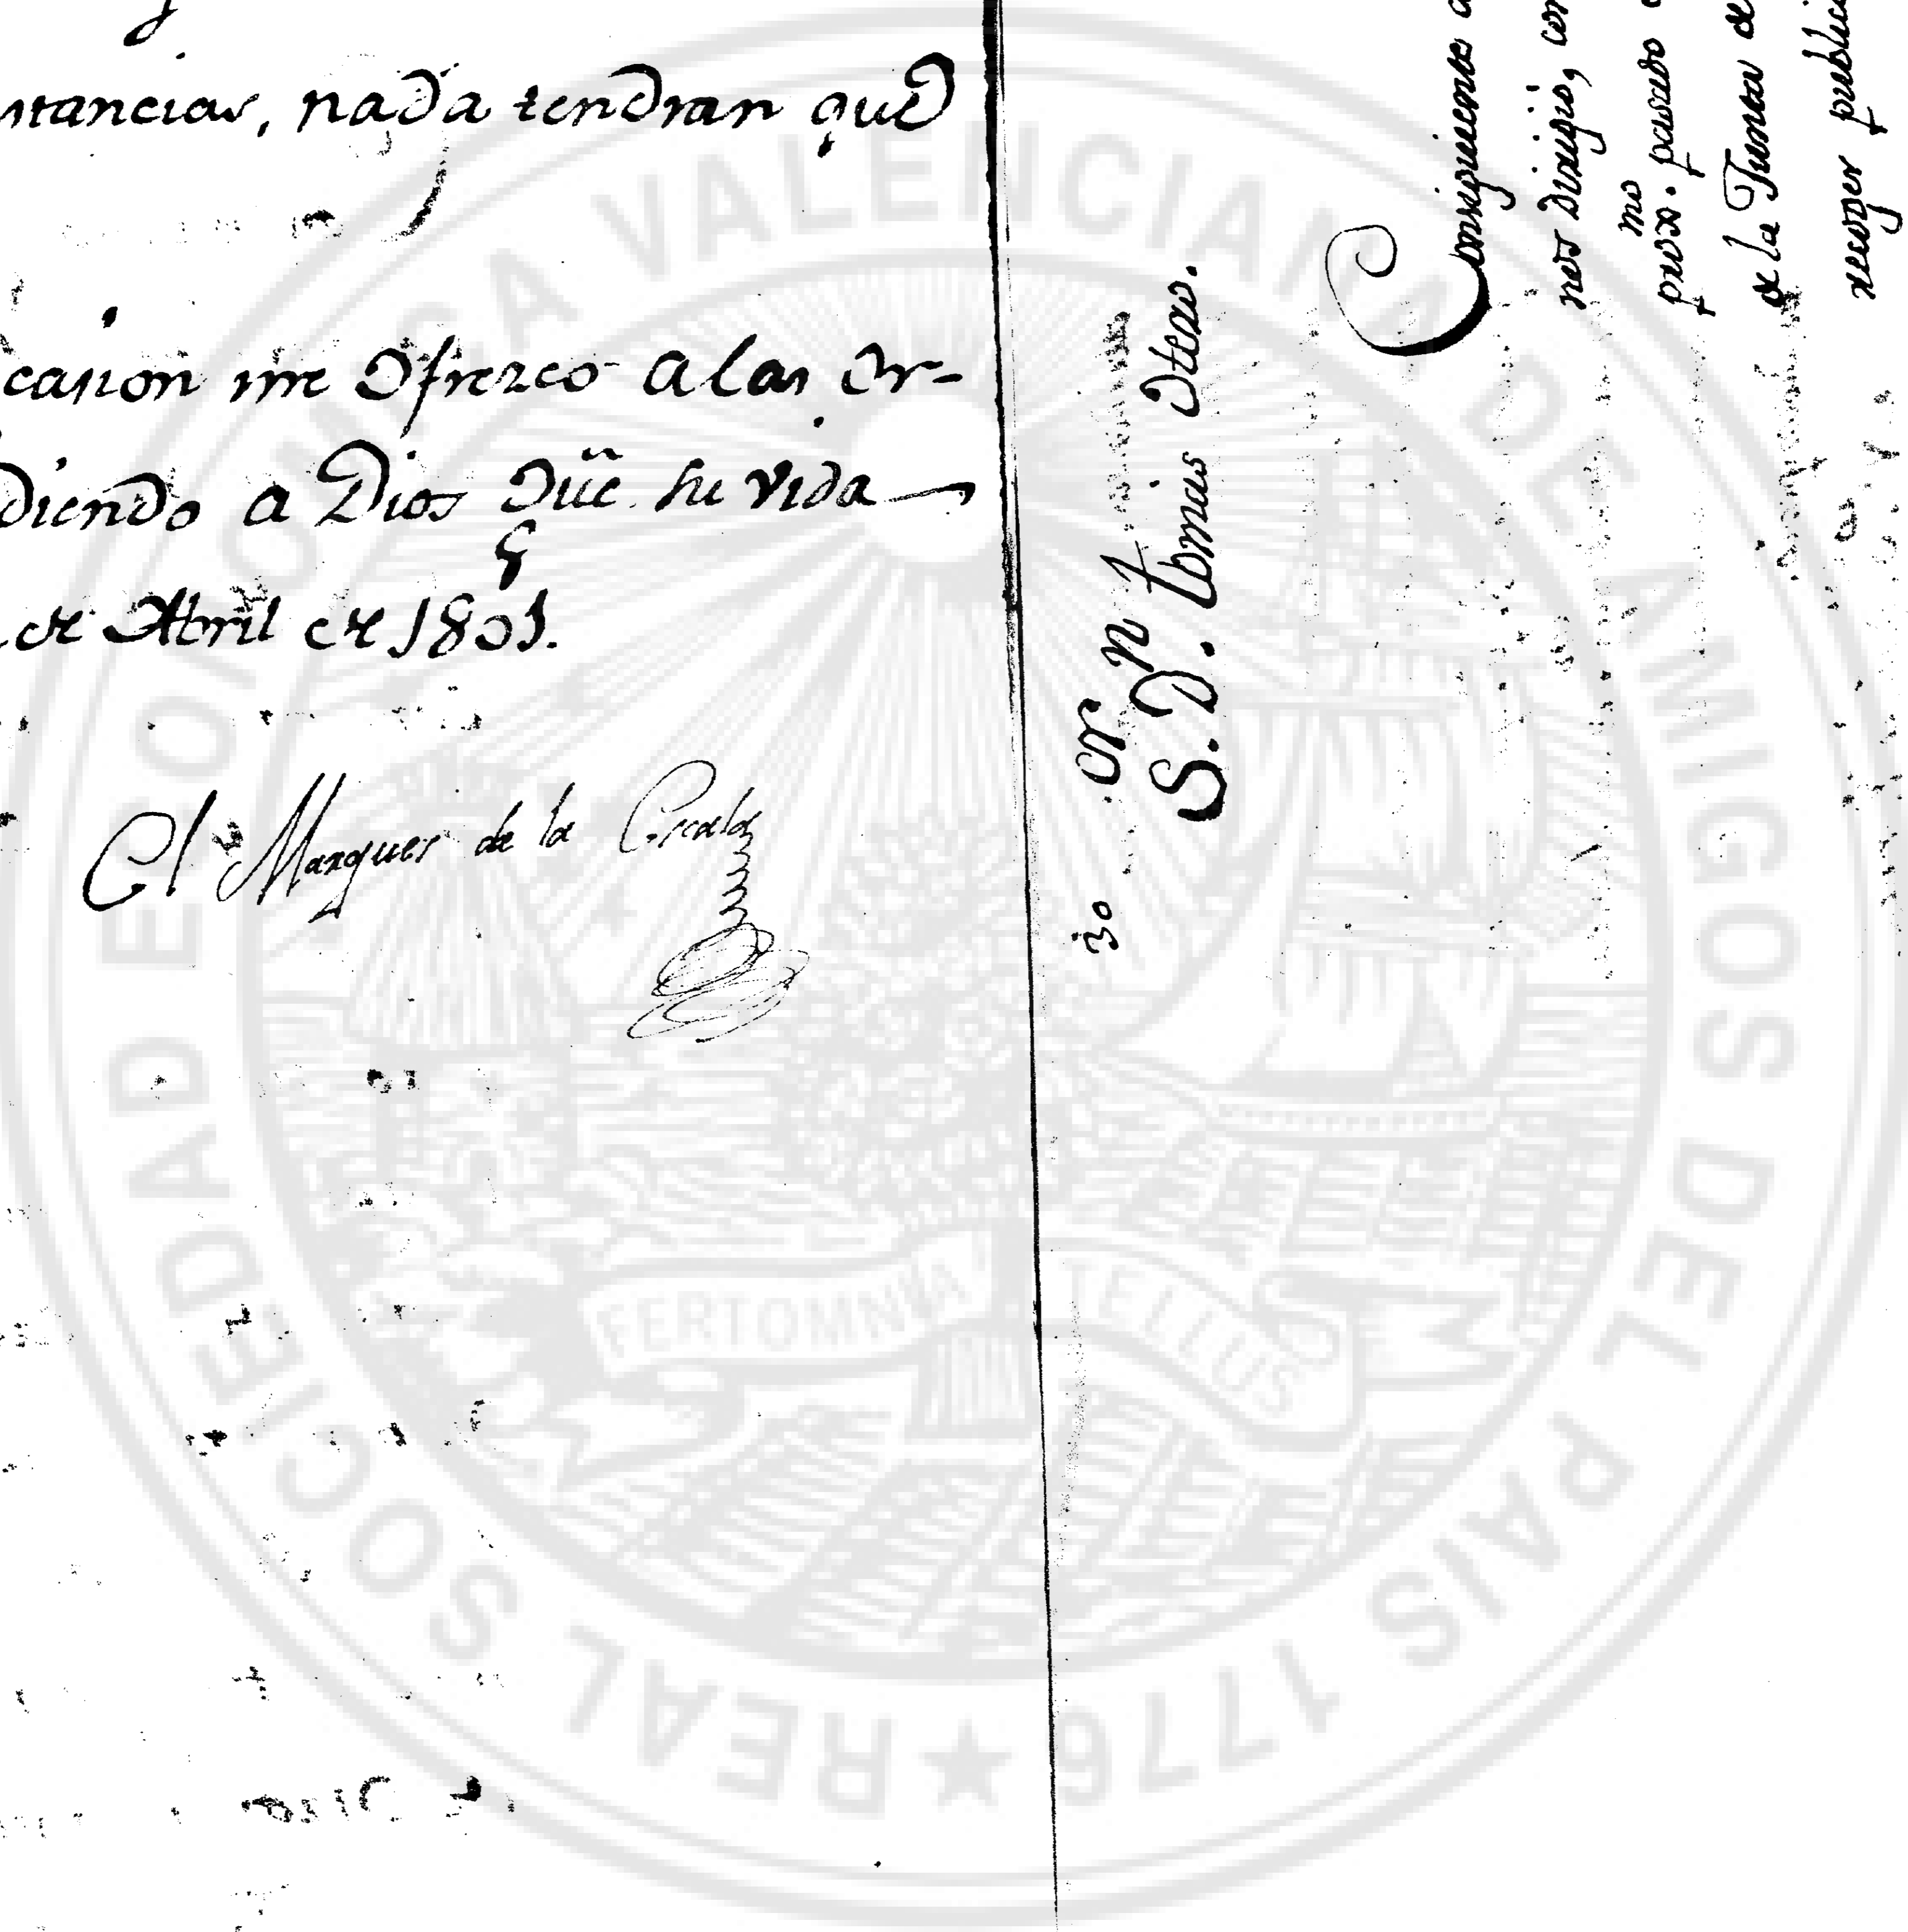 stancias, nada tendran que
casion me Ofrezco a las Or-
diendo a Dios gũe su vida
de Abril de 1801.
El Marques de la Escala
30
S.or D.n Tomas Otero.
Consiguiente a
nos dirigio, con
prox.mo pasado
de la Junta de
recoger public
REAL SOCIEDAD ECONOMICA VALENCIANA DE AMIGOS DEL PAIS 1776
FERT OMNIA TELLUS